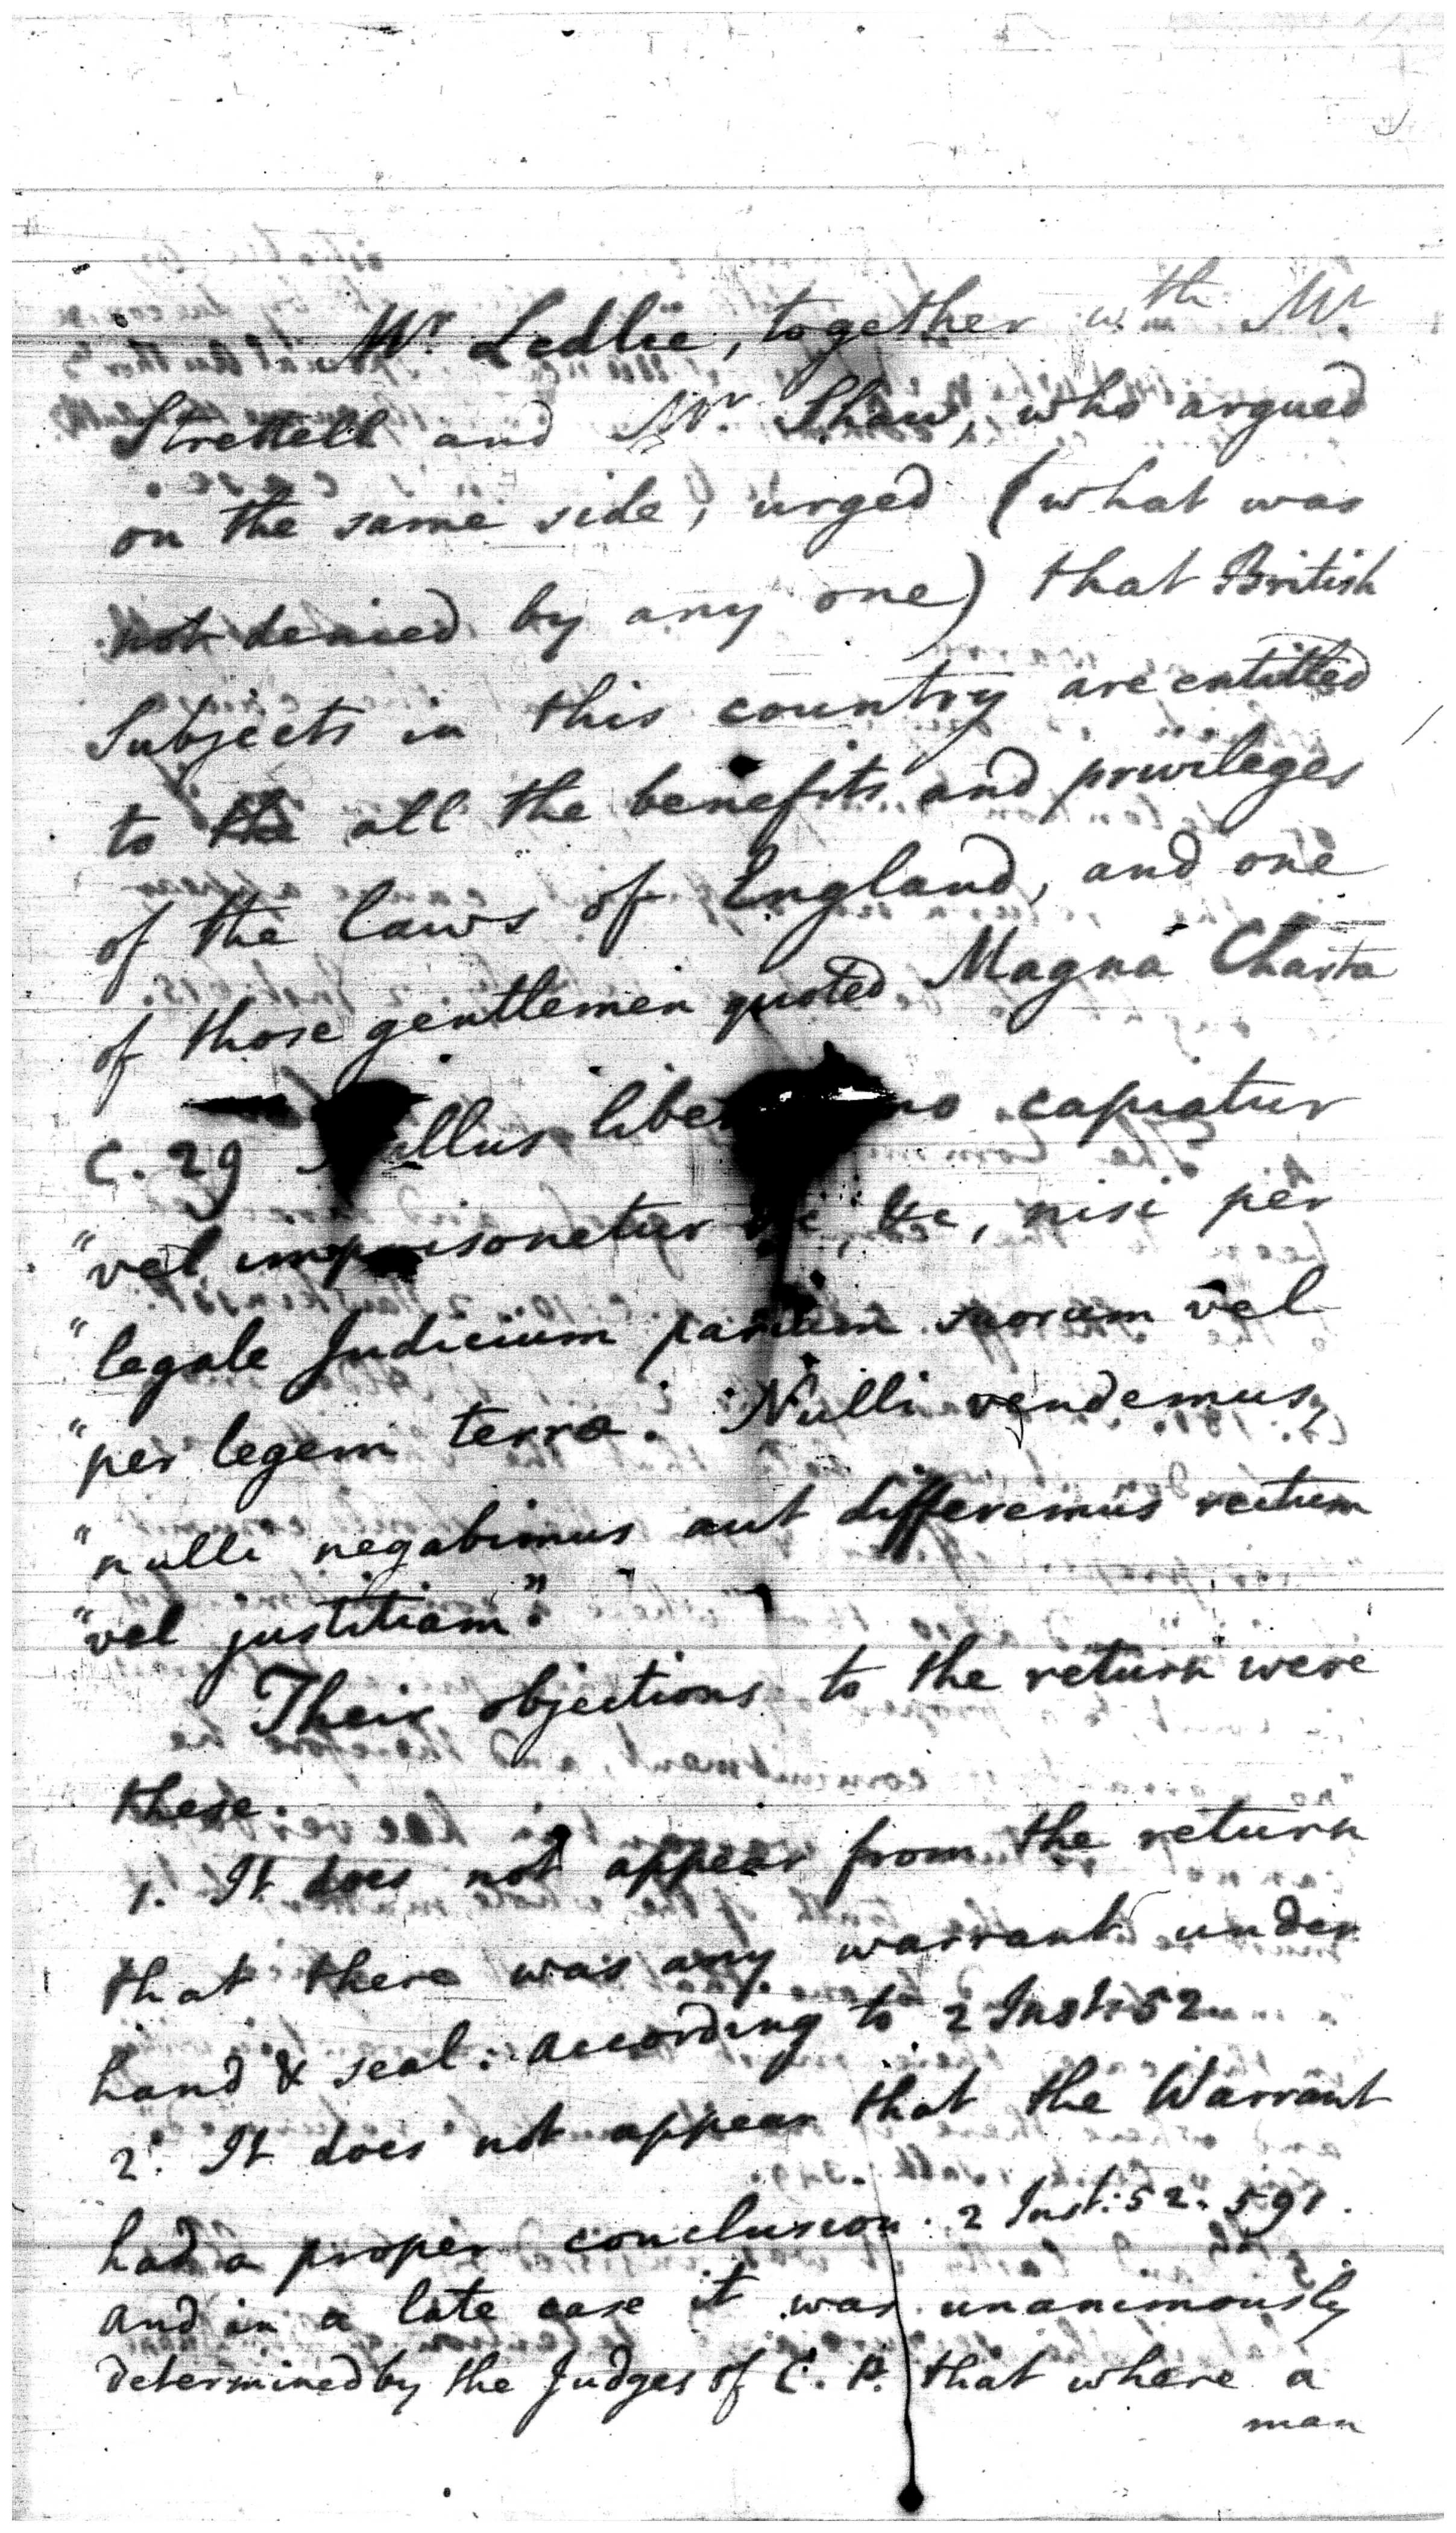 Mr. Ledlie, together with Mr
Strettell and Mr. Shaw, who argued
on the same side, urged (what was
not denied by any one) that British
Subjects in this country are entitled
to the all the benefits and privileges
of the laws of England, and one
of those gentlemen quoted Magna Charta
c. 29 Nullus liber homo capiatur
"vel imprisonetur &c, &c, nisi per
"legale Judicium parium suorum vel
"per legem terræ. Nulli vendemus,
"nulli negabimus aut differemus rectum
"vel justitiam".
Their objections to the return were
these.
1. It does not appear from the return
that there was any warrant under
hand & seal. according to 2 Inst: 52
2. It does not appear that the Warrant
had a proper conclusion. 2 Inst: 52. 591.
and in a late case it was unanimously
determined by the Judges of C. P. that where a
man